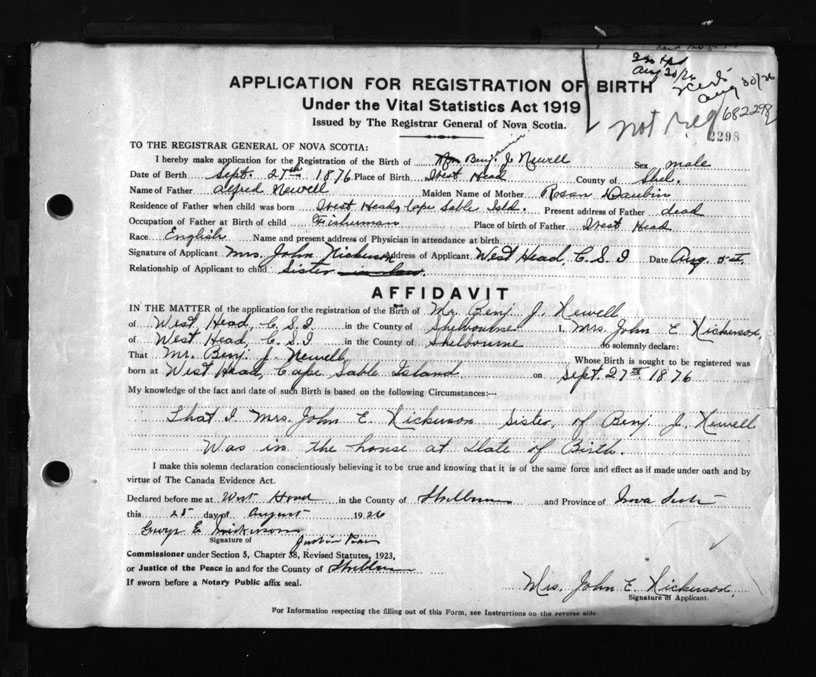 Aug 30/26
Aug 30/26
APPLICATION FOR REGISTRATION OF BIRTH
Under the Vital Statistics Act 1919
Issued by The Registrar General of Nova Scotia.
Not Reg 682298
2298
TO THE REGISTRAR GENERAL OF NOVA SCOTIA:
I hereby make application for the Registration of the Birth of Benj. J. Newell Sex male
Date of Berth Sept. 27th 1876 Place of Birth West Head County of Shel.
Name of Father Alfred Newell Maiden Name of Mother Rosan
Residence of Father when child was born West Head, Cape Sable Isld. Present address of Father dead
Occupation of Father at Birth of child Fisherman Place of birth of Father West Head
Race English Name and present address of Physician in attendance at birth
Signature of Applicant Mrs. John Nickerson Address of Applicant West Head, C. S. I Date Aug.
Relationship of Applicant to child Sister in law.
AFFIDAVIT
IN THE MATTER of the application for the registration of the Birth of Mr. Benj. J. Newell
of West Head, C. S. I. in the County of Shelbourne I, Mrs. John E. Nickerson,
of West Head, C. S. I in the County of Shelbourne do solemnly declare:
That Mr. Benj. J. Newell Whose Birth is sought to be registered was
born at West Head, Cape Sable Island on Sept. 27th 1876
My knowledge of the fact and date of such Birth is based on the following Circumstances:—
That I Mrs. John E. Nickerson Sister, of Benj. J. Newell
Was in the house at Date of Birth.
I make this solemn declaration conscientiously believing it to be true and knowing that it is of the same force and effect as if made under oath and by
virtue of The Canada Evidence Act.
Declared before me at West Head in the County of Shelburne and Province of Nova Scotia
this 25 day of August 1926
Signature of
Commissioner under Section 5, Chapter 38, Revised Statutes, 1923,
or Justice of the Peace in and for the County of Shelburne
If sworn before a Notary Public affix seal.
Mrs. John E. Nickerson,
Signature of Applicant.
For Information respecting the filling out of this Form, see Instructions on the reverse side.